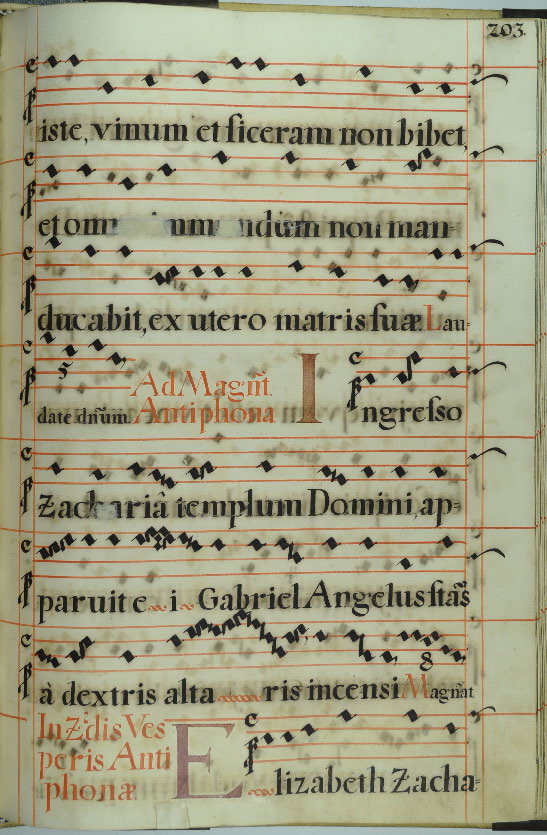 203.
iste, vinum et siceram non bibet,
et omn nmundum non man-
ducabit, ex utero matris suæ Lau-
date dnũm. Ad Magnt̃. Antiphona Ingresso
Zachariâ templum Domini, ap-
paruit ei Gabriel Angelus stãs
à dextris altaris incensi Magnãt
8
In Z.is dis Ves
peris Anti
phonæ Elizabeth Zacha-